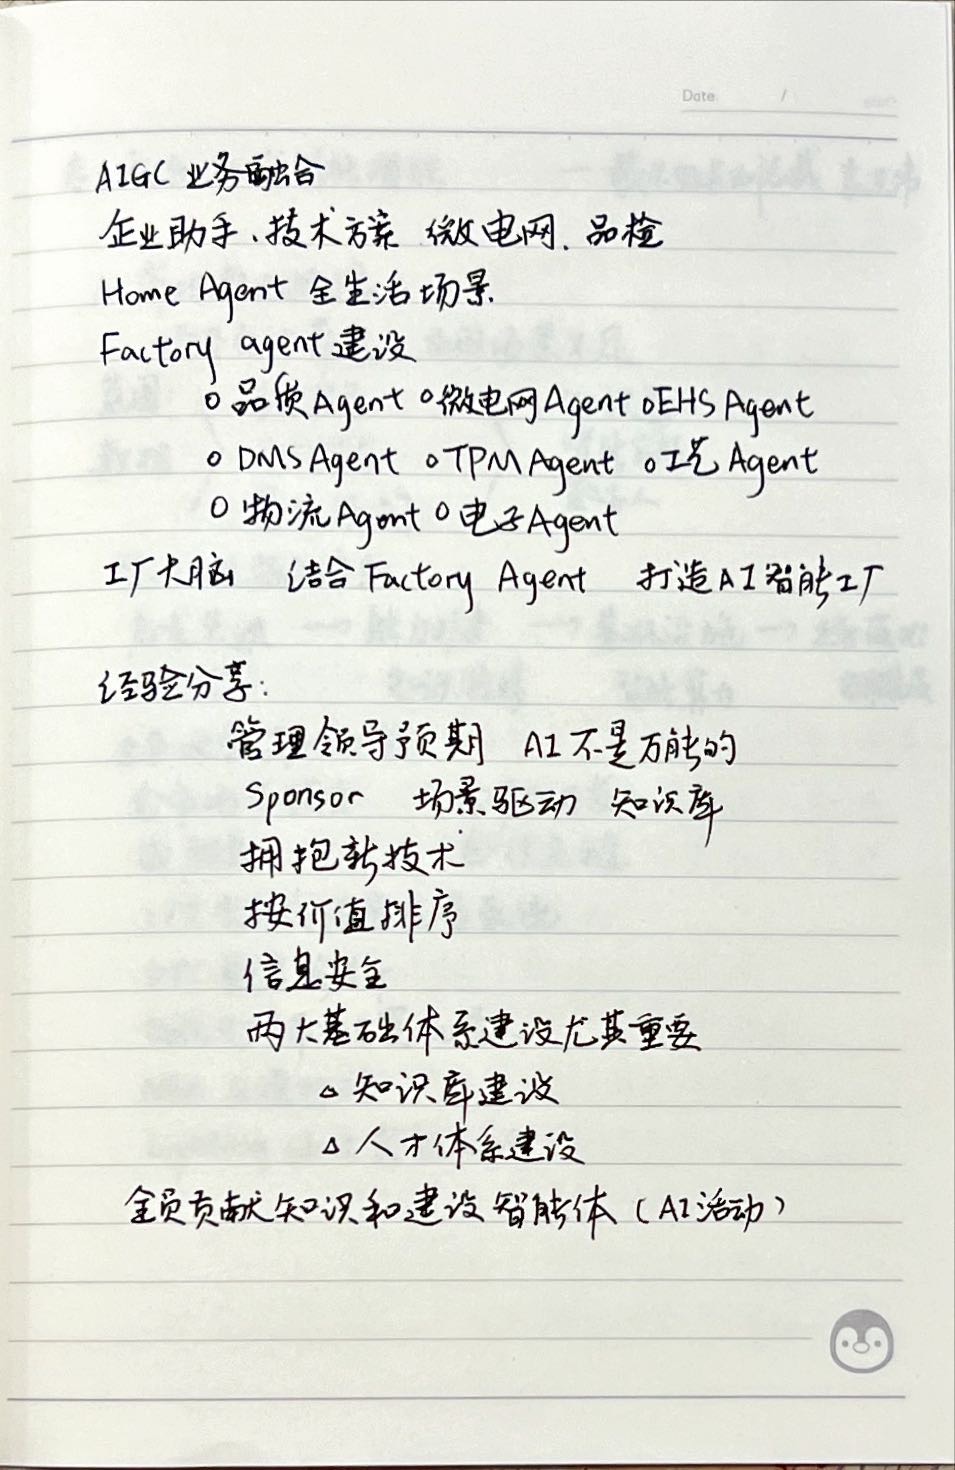 Date. /
AIGC 业务融合
企业助手、技术方案 微电网、品检
Home Agent 全生活场景
Factory agent 建设
o 品质Agent o 微电网Agent o EHS Agent
o DMS Agent o TPM Agent o 工艺 Agent
o 物流Agent o 电子Agent
工厂大脑 结合 Factory Agent 打造AI智能工厂
经验分享:
管理领导预期 AI不是万能的
Sponsor 场景驱动 知识库
拥抱新技术
按价值排序
信息安全
两大基础体系建设尤其重要
△ 知识库建设
△ 人才体系建设
全员贡献知识和建设智能体（AI活动）